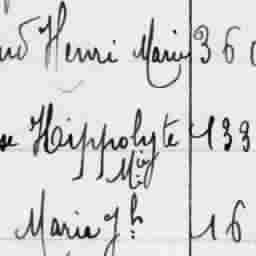 Henri Marie 36
Hippolyte 133
Maria Jh 16